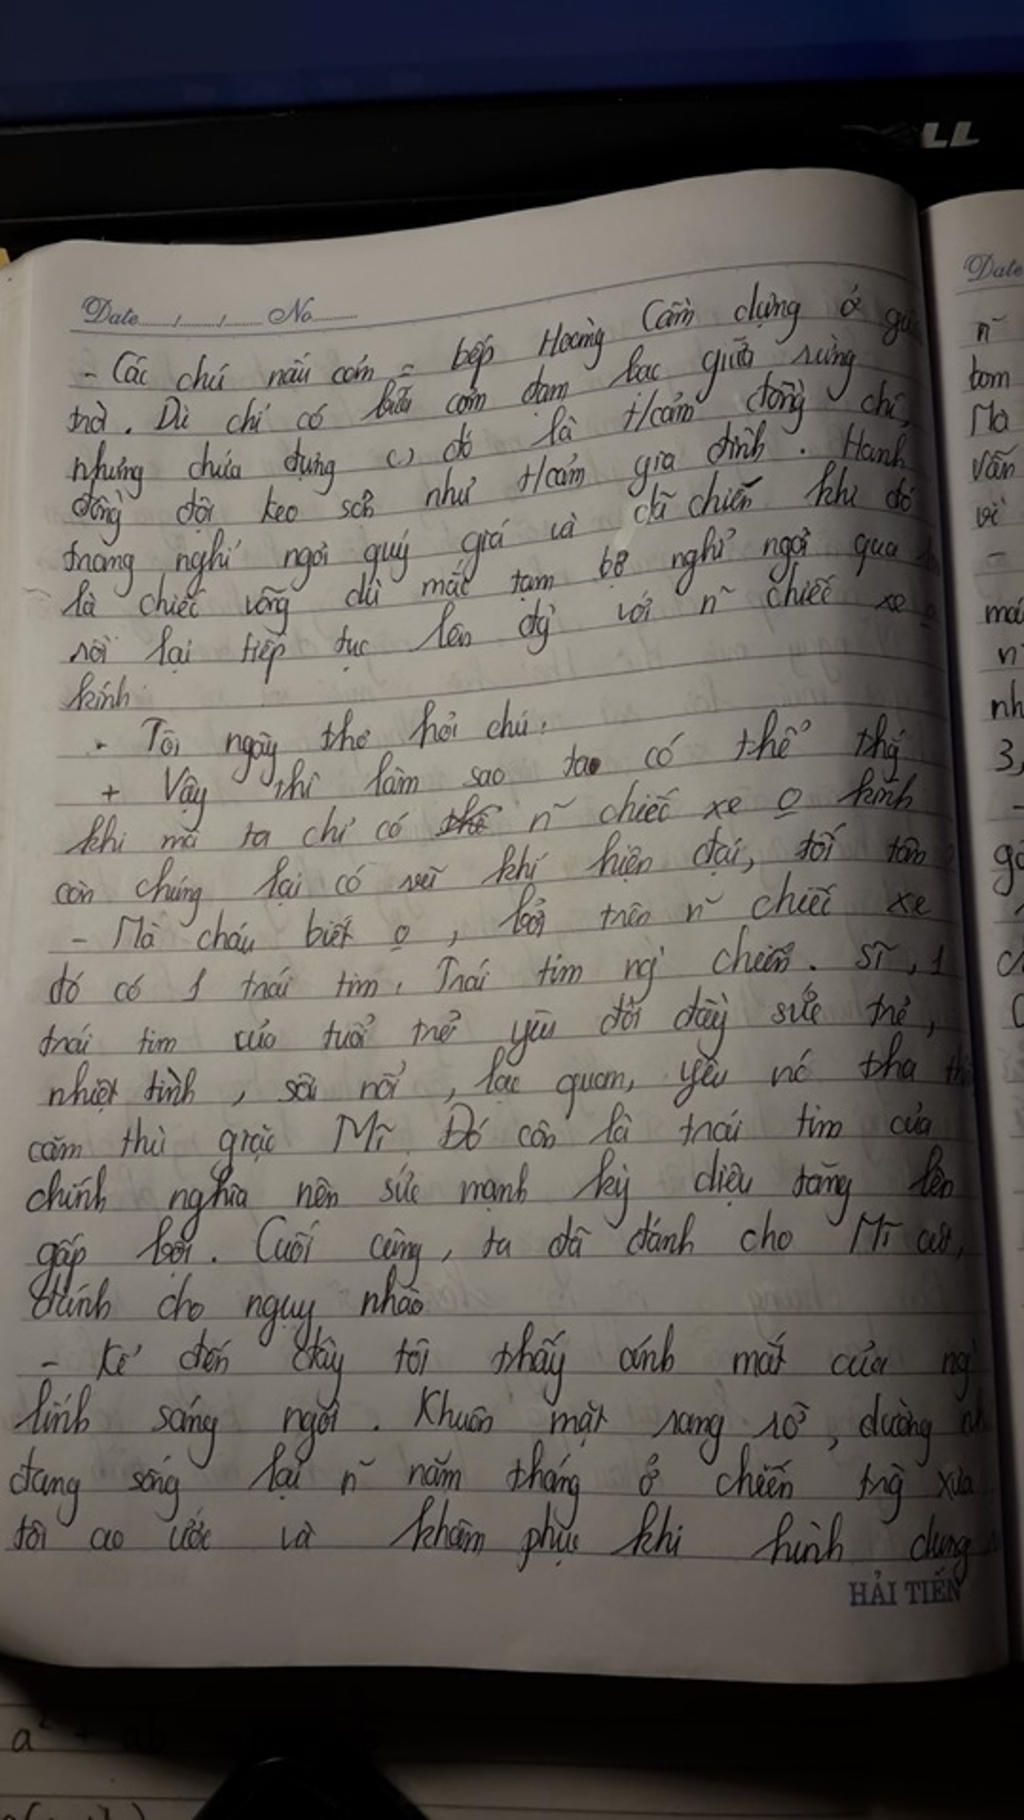 DELL
Date...../...../..... No........
- Các chú nấu cơm = bếp Hoàng Cầm dựng ở giữa
trời. Dù chỉ có bữa cơm đạm bạc giữa rừng
nhưng chứa đựng () đó là t/cảm đồng chí,
đồng đội keo sơn như t/cảm gia đình. Hành
trang nghỉ ngơi quý giá và dã chiến khi đó
là chiếc võng dù mắc tạm bợ nghỉ ngơi qua
rồi lại tiếp tục lên đg với n~ chiếc xe o
kính
- Tôi ngây thơ hỏi chú:
+ Vậy thì làm sao ta có thể thg
khi mà ta chỉ có n~ chiếc xe o kính
còn chúng lại có vũ khí hiện đại, tối tân
- Mà cháu biết o, bởi trên n~ chiếc xe
đó có 1 trái tim. Trái tim ng' chiến sĩ, 1
trái tim của tuổi trẻ yêu đời đầy sức trẻ,
nhiệt tình, sôi nổi, lạc quan, yêu nc tha
căm thù giặc Mĩ. Đó còn là trái tim của
chính nghĩa nên sức mạnh kỳ diệu tăng lên
gấp bội. Cuối cùng, ta đã đánh cho Mĩ cút,
đánh cho nguỵ nhào
- Kể đến đây tôi thấy ánh mắt của ng'
lính sáng ngời. Khuôn mặt rạng rỡ, dường nh
đang sống lại n~ năm tháng ở chiến trg xưa
tôi ao ước và khâm phục khi hình dung
HẢI TIẾN
Date
n~
bom
Mà
vẫn
vì
-
n~
nh
3,
a² + ab